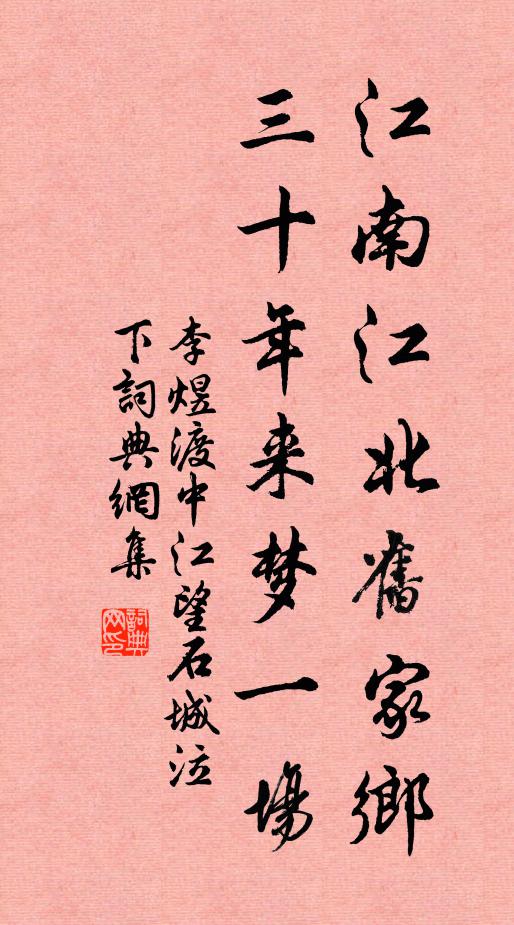 江南江北舊家鄉
三十年来梦一場
李煜渡中江望石城泣
下詞典網集
詞典网印